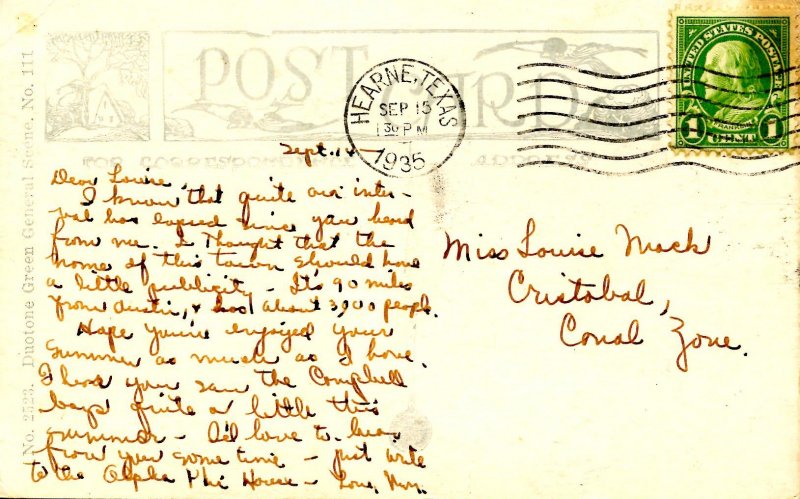 No. 2523. Duotone Green General Scene. No. 111
POST CARD
HEARNE, TEXAS
SEP 15
130 PM
1935
UNITED STATES POSTAGE
FRANKLIN
1 CENT 1
Sept. 15
Dear Louise,
I know that quite an inter-
val has lapsed since you heard
from me. I thought that the
name of this town should have
a little publicity - It's 90 miles
from Austin, & has about 3,000 people.
Hope you've enjoyed your
summer as much as I have.
I hear you saw the Campbell
boys quite a little this
summer - I'd love to hear
from you some time - just write
to the Alpha Phi House - Love,
Miss Louise Mack
Cristobal,
Canal Zone.